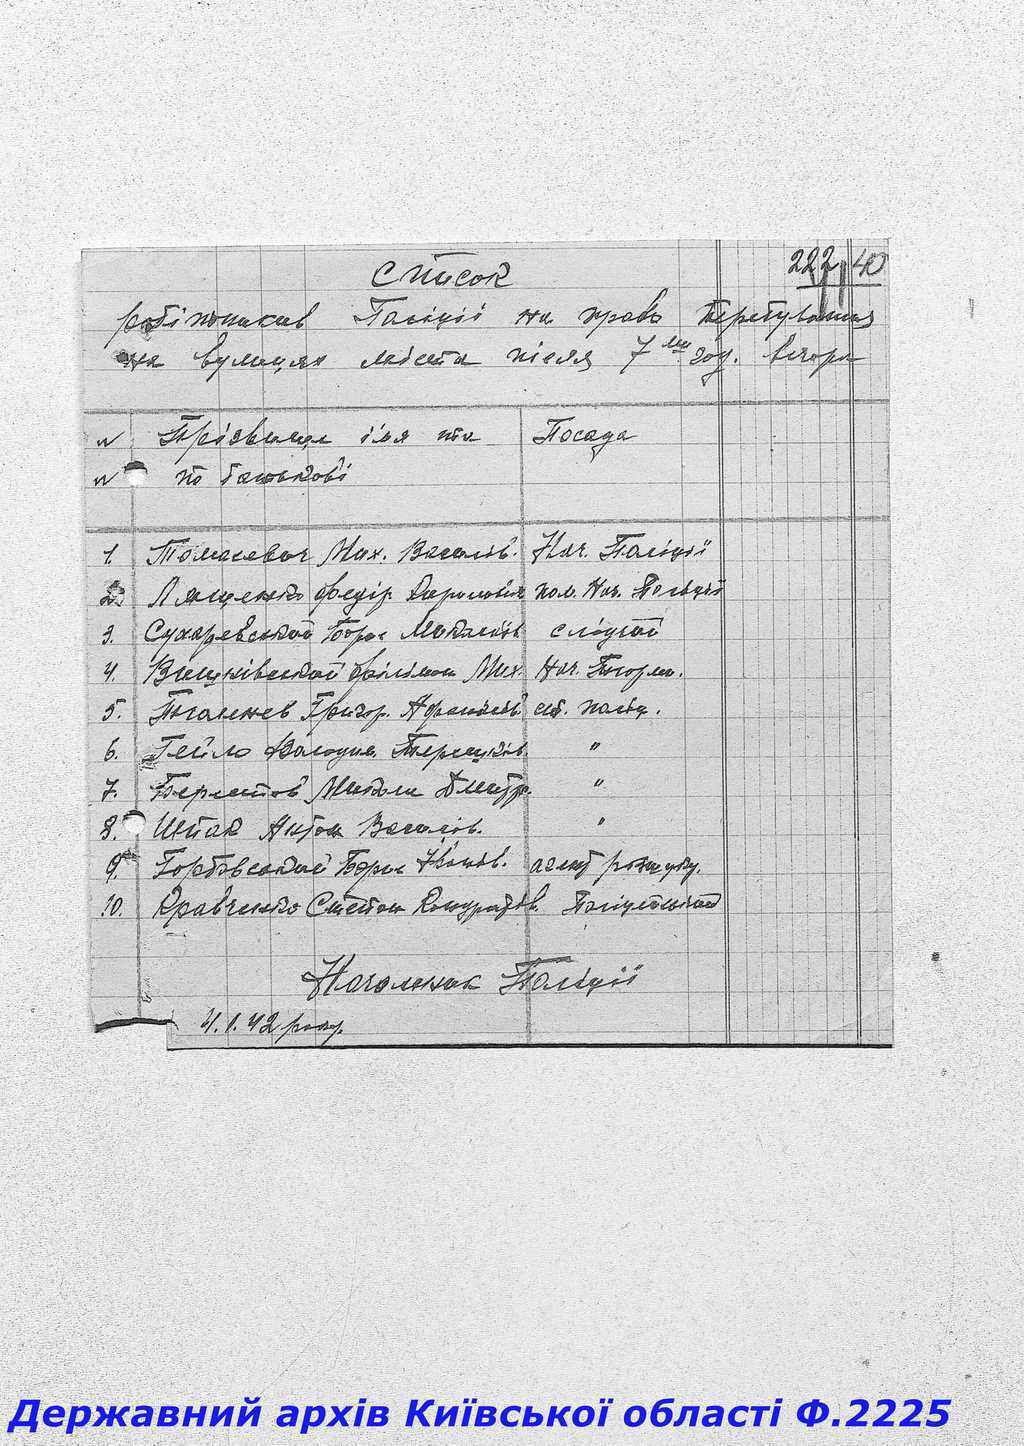 222 40
Список
робітників Поліції на право перебування
на вулицях міста після 7ми год. вечора
№ Прізвище ім'я та Посада
№ по батькові
1. Томасевич Мих. Василів. Нач. Поліції
2. Лященко Федір пом. Нач. Поліції
3. Сухаревський Борис Микол. слідчий
4. Мих. Нач. Тюрми.
5. Григор. ст. поліц.
6. Гейло Володим. "
7. Берестов Микола Дмитр. "
8. Шпак Антон Василів. "
9. Горбовський Борис Іванов. агент розшуку.
10. Кравченко Степан Кондратів. Поліцейський
Начальник Поліції
4.1.42 року
Державний архів Київської області Ф.2225